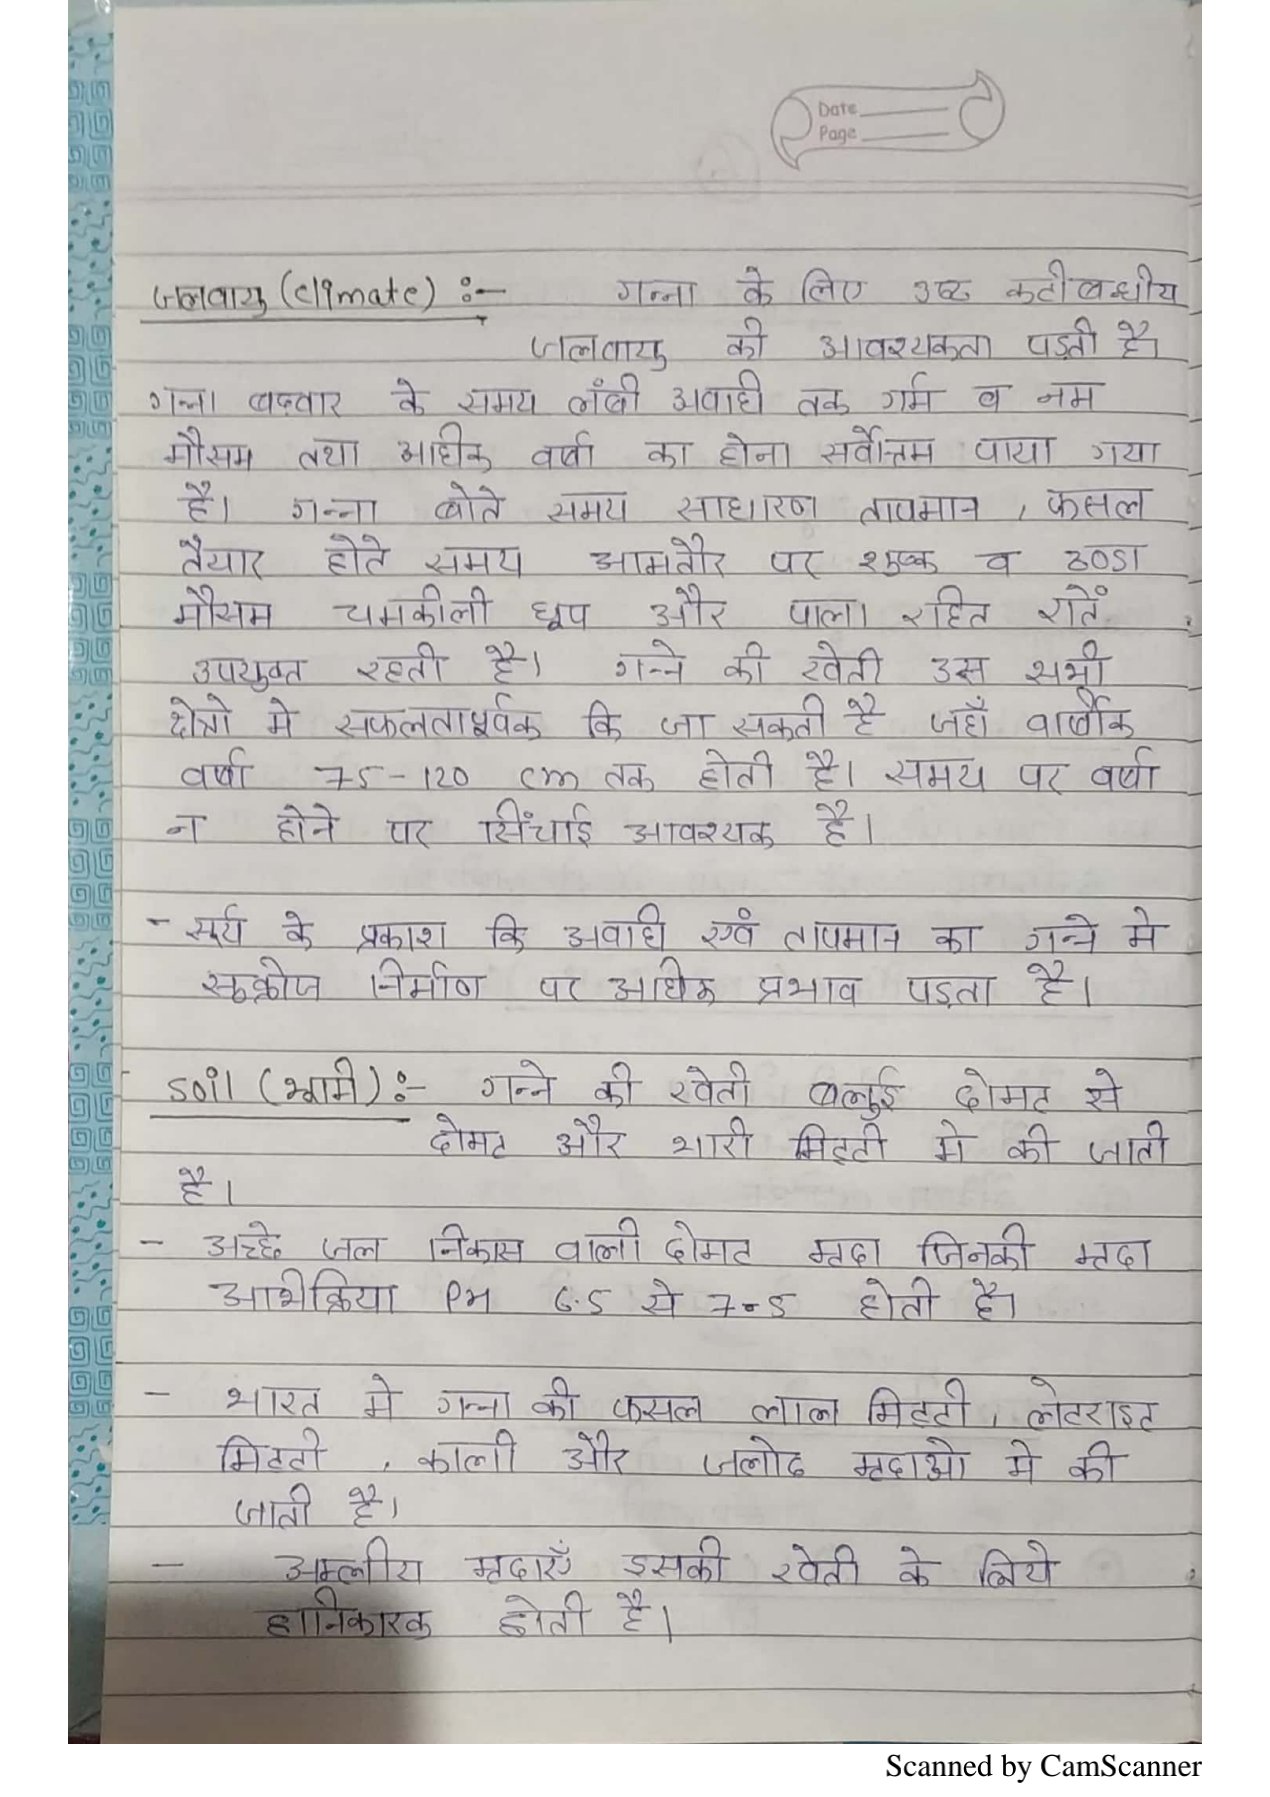 Date
Page
जलवायु (climate) :- गन्ना के लिए उष्ट कटीबन्धीय
जलवायु की आवश्यकता पड़ती है।
गन्ना बढ्वार के समय लंबी अवाधी तक गर्म व नम
मौसम तथा आधीक वर्षा का होना सर्वोत्तम पाया गया
है। गन्ना बोते समय साधारण तापमान , फसल
तैयार होते समय आमतौर पर शुष्क व ठण्डा
मौसम चमकीली धूप और पाला रहित रातें
उपयुक्त रहती है। गन्ने की खेती उस सभी
क्षेत्रो मे सफलतापूर्वक कि जा सकती है जहाँ वार्षीक
वर्षा 75-120 cm तक होती है। समय पर वर्षा
न होने पर सिंचाई आवश्यक है।
- सूर्य के प्रकाश कि अवाधी एवं तापमान का गन्ने मे
सूक्रोज निर्माण पर आधिक प्रभाव पड़ता है।
Soil (भूमी) :- गन्ने की खेती बलुई दोमट से
दोमट और भारी मिट्टी मे की जाती
है।
- अच्छे जल निकास वाली दोमट मृदा जिनकी मृदा
आभीक्रिया PH 6.5 से 7.5 होती है।
- भारत मे गन्ना की फसल लाल मिट्टी , लेटराइट
मिट्टी , काली और जलोढ मृदाओ मे की
जाती है।
- अम्लीय मृदाएँ इसकी खेती के लिये
हानिकारक होती है।
Scanned by CamScanner